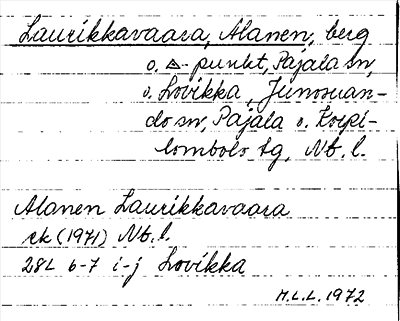 Laurikkavaara, Alanen, berg
o. △-punkt, Pajala sn,
o. Lovikka, Junosuan-
do sn, Pajala o. Korpi-
lombolo tg, Nb. l.
Alanen Laurikkavaara
rk (1971) Nb. l.
28L 6-7 i-j Lovikka
M.L.L. 1972